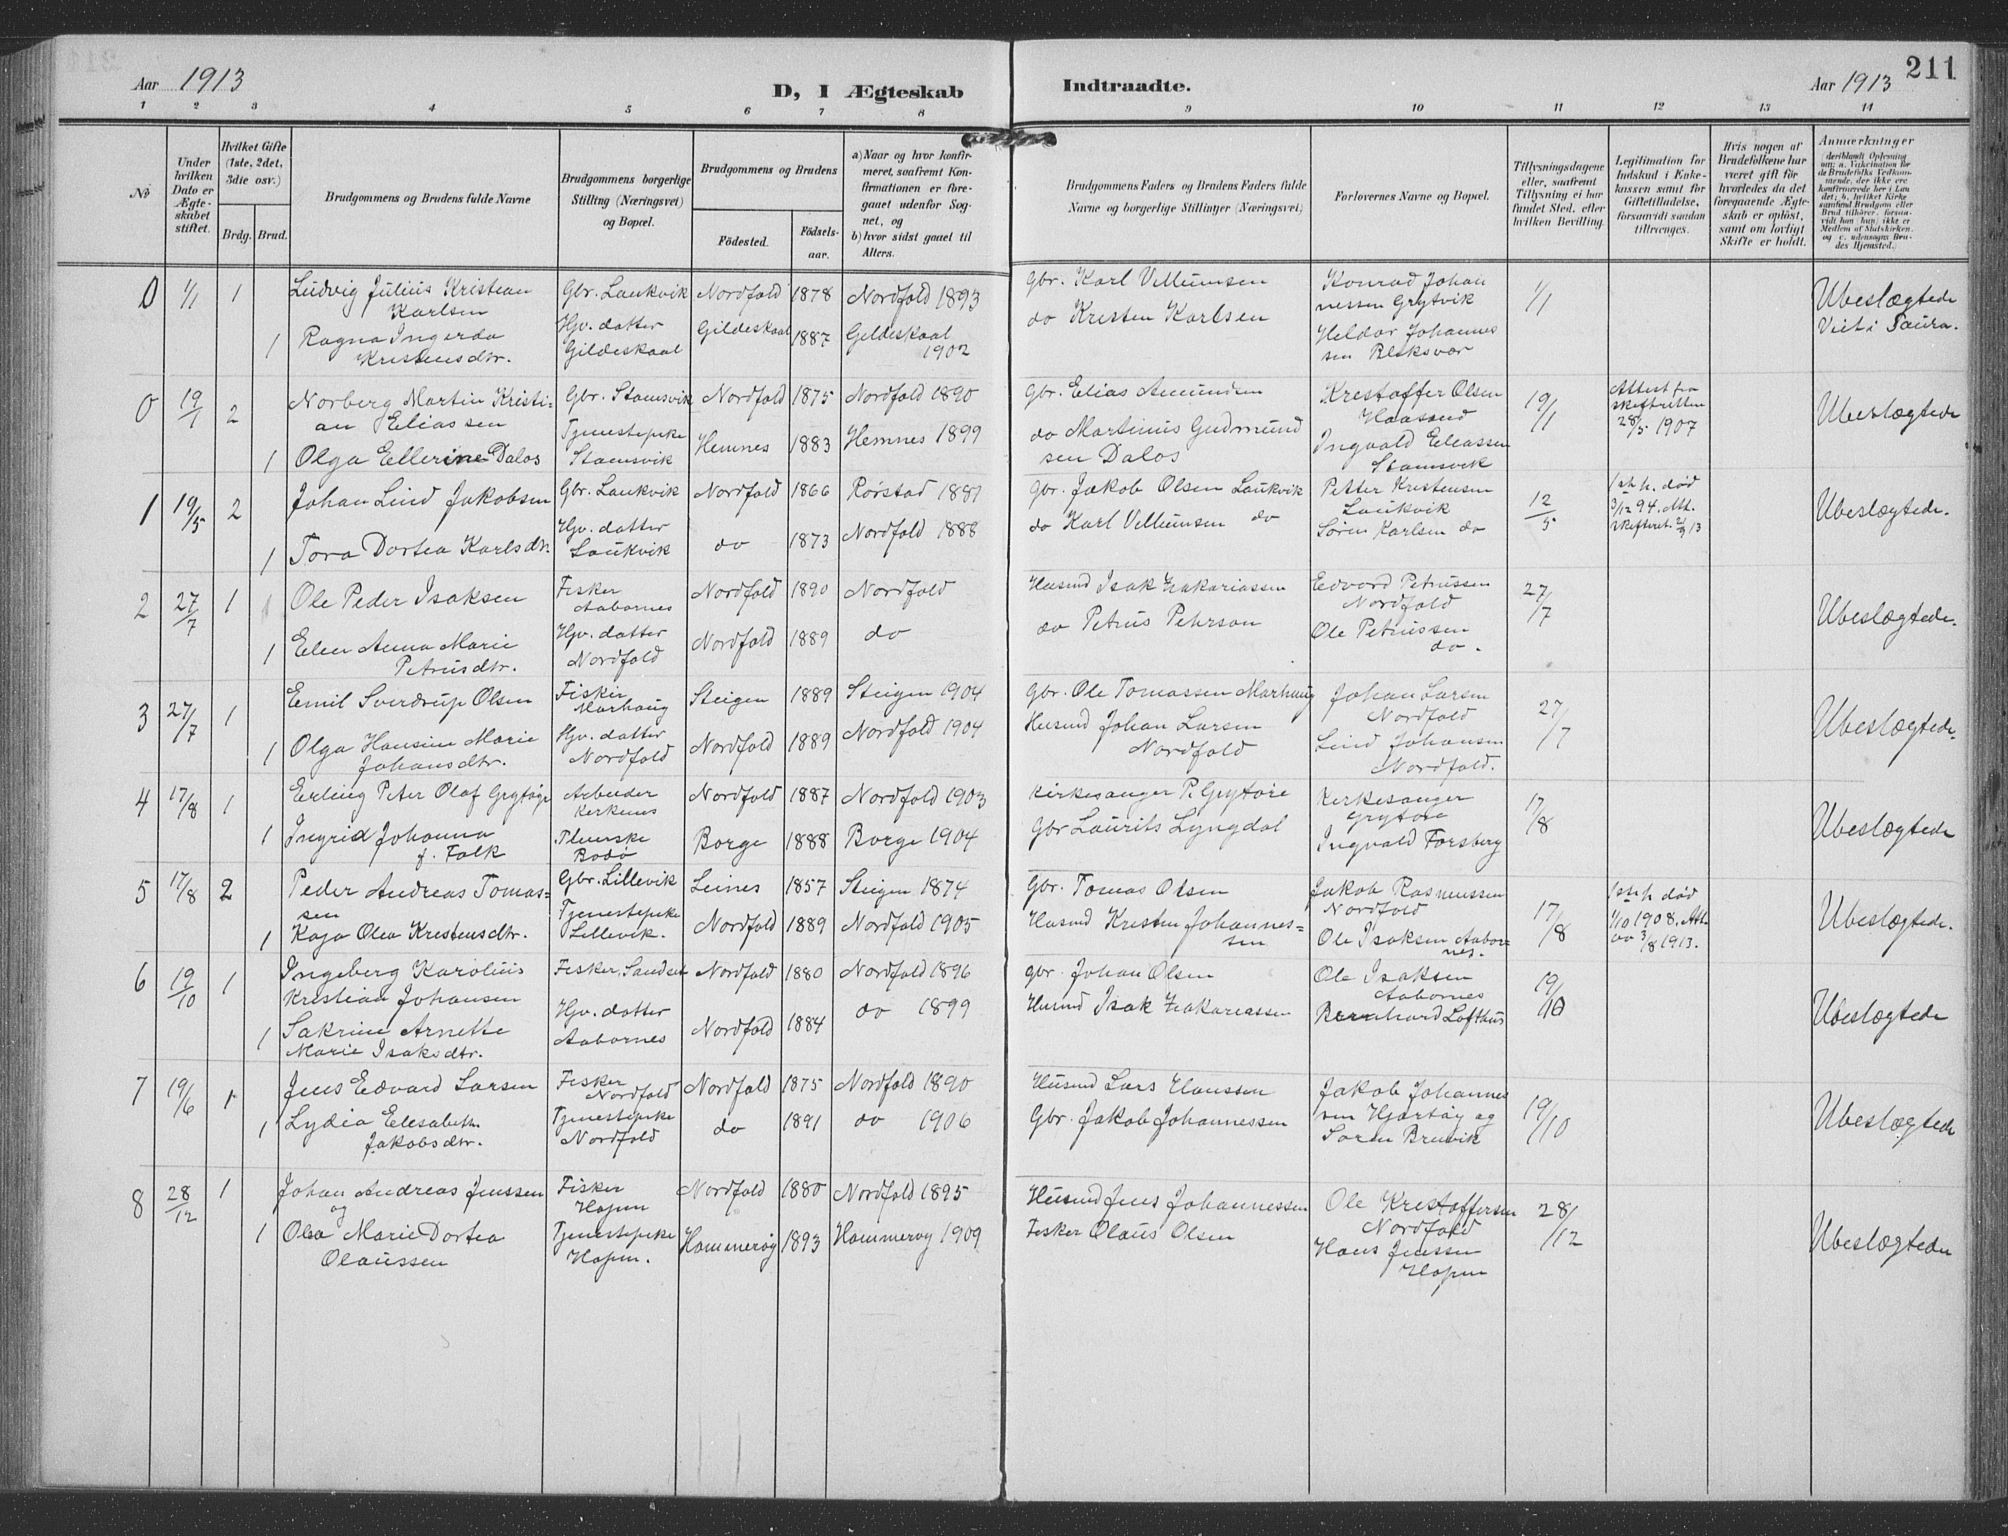 211
Aar 1913
D, I Ægteskab Indtraadte.
Aar 1913
1 2 3 4 5 6 7 8 9 10 11 12 13 14
No
Under hvilken Dato er Ægteskabet stiftet.
Hvilket Gifte (1ste, 2det, 3die osv.)
Brdg. Brud.
Brudgommens og Brudens fulde Navne
Brudgommens borgerlige Stilling (Næringsvei) og Bopæl.
Brudgommens og Brudens
Födested.
Födsels-aar.
a) Naar og hvor konfirmeret, saafremt Konfirmationen er foregaaet udenfor Sognet, og
b) hvor sidst gaaet til Alters.
Brudgommens Faders og Brudens Faders fulde Navne og borgerlige Stillinger (Næringsvei)
Forlovernes Navne og Bopæl.
Tillysningsdagene eller, saafremt Tillysning ei har fundet Sted, efter hvilken Bevilling.
Legitimation for Indskud i Enkekassen samt for Giftetilladelse, forsaavidt saadan tiltrænges.
Hvis nogen af Brudefolkene har været gift för hvorledes da det foregaaende Ægteskab er oplöst, samt om lovligt Skifte er holdt.
Anmærkninger
0 1/1 1 Ludvig Julius Kristian Karlsen Gbr. Laukvik Nordfold 1878 Nordfold 1893 Gbr. Karl Villumsen Konrad Johannessen Grytvik 1/1 Ubeslægtede
1 Ragna Ingerda Kristensdtr. Gpv. datter Gildeskaal Gildeskaal 1887 Gildeskaal 1902 do Kristen Karlsen Heldor Johannessen Bleksvær
0 19/1 2 Norberg Martin Kristian Eliassen Gbr. Stamsvik Nordfold 1875 Nordfold 1890 Gbr. Elias Amundsen Krestoffer Olsen 19/1 Attest fra skifteretten 28/5 1907 Ubeslægtede
1 Olga Ellerine Dalos Tjenestepike Stamsvik Hemnes 1883 Hemnes 1899 do Martinus Gudmundsen Dalos Ingvald Eliassen Stamsvik
1 19/5 2 Johan Lind Jakobsen Gbr. Laukvik Nordfold 1866 Rørstad 1881 Gbr. Jakob Olsen Laukvik Petter Kristensen Laukvik 12/5 1ste h. død 3/12 94. Att. skifteret. Ubeslægtede.
1 Tora Dortea Karlsdtr. Hjv. datter Laukvik do 1873 Nordfold 1888 do Karl Villumsen do Søren Karlsen do
2 27/7 1 Ole Peder Isaksen Fisker Aabornes Nordfold 1890 Nordfold Husmd Isak Zakariassen Edvard Petrussen Nordfold 27/7 Ubeslægtede.
1 Elen Anna Marie Petrusdtr. Hjv. datter Nordfold Nordfold 1889 do do Petrus Peterson Ole Petrussen do.
3 27/7 1 Emil Sverdrup Olsen Fisker Marhaug Steigen 1889 Steigen 1904 Gbr. Ole Tomassen Marhaug Johan Larsen Nordfold 27/7 Ubeslægtede.
1 Olga Hansine Marie Johansdtr. Hjv. datter Nordfold Nordfold 1889 Nordfold 1904 Husmd Johan Larsen Nordfold Lind Johansen Nordfold.
4 17/8 1 Erling Peter Olaf Grytøyr Arbeider Kerkenes Nordfold 1887 Nordfold 1903 Kirkesanger P. Grytøre Kerkesanger Grytøre 17/8 Ubeslægtede
1 Ingrid Johanna f. Falk Bodø Borge 1888 Borge 1904 Gbr Laurits Lyngdal Ingvald Forsberg
5 17/8 2 Peder Andreas Tomassen Gbr. Lillevik Leines 1857 Steigen 1874 Gbr. Tomas Olsen Jakob Rasmussen Nordfold 17/8 1ste h død 1/10 1908. Att. av 3/8 1913. Ubeslægtede.
1 Kaja Olea Krestensdtr. Tjenestepike Lillevik. Nordfold 1889 Nordfold 1905 Husmd Kresten Johannessen Ole Isaksen Aabornes.
6 19/10 1 Ingeberg Karolius Kristian Johansen Fisker, Sandset Nordfold 1880 Nordfold 1896 Gbr. Johan Olsen Ole Isaksen Aabornes 19/10 Ubeslægtede
1 Sakrine Arnette Marie Isaksdtr. Hjv. datter Aabornes Nordfold 1884 do 1899 Husmd Isak Zakariassen Bernhard Lofthus
7 19/6 1 Jens Edvard Larsen Fisker Nordfold Nordfold 1875 Nordfold 1890 Husmd Lars Hanssen Jakob Johannessen Hjartøy og 19/10 Ubeslægtede
1 Lydia Elesabeth Jakobsdtr. Tjenestepike Nordfold do 1891 do 1906 Gbr. Jakob Johannessen Søren Bruvik
8 28/12 1 Johan Andreas Jenssen og Fisker Hopen Nordfold 1880 Nordfold 1895 Husmd Jens Johannessen Ole Krestoffersen Nordfold 28/12 Ubeslægtede
1 Olea Marie Dortea Olaussen Tjenestepike Hopen. Hammerøy 1893 Hammerøy 1909 Fisker Olaus Olsen Hans Jenssen Hopen